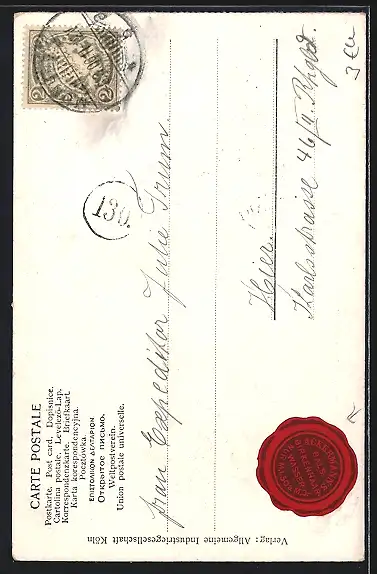 CARTE POSTALE
Postkarte. Post card. Dopisnice.
Cartolina postale. Levelező-Lap.
Korrespondenzkarte. Briefkaart.
Karta korespondencyjna.
Pocztówka.
ΕΠΙΣΤΟΛΙΚΟΝ ΔΕΛΤΑΡΙΟΝ
Открытое письмо.
Weltpostverein.
Union postale universelle.
130.
Frau Expeditor Julie Trumm.
Hier.
Karlsstrasse 46/II. Rhgbd.
Verlag: Allgemeine Industriegesellschaft Köln
2
2